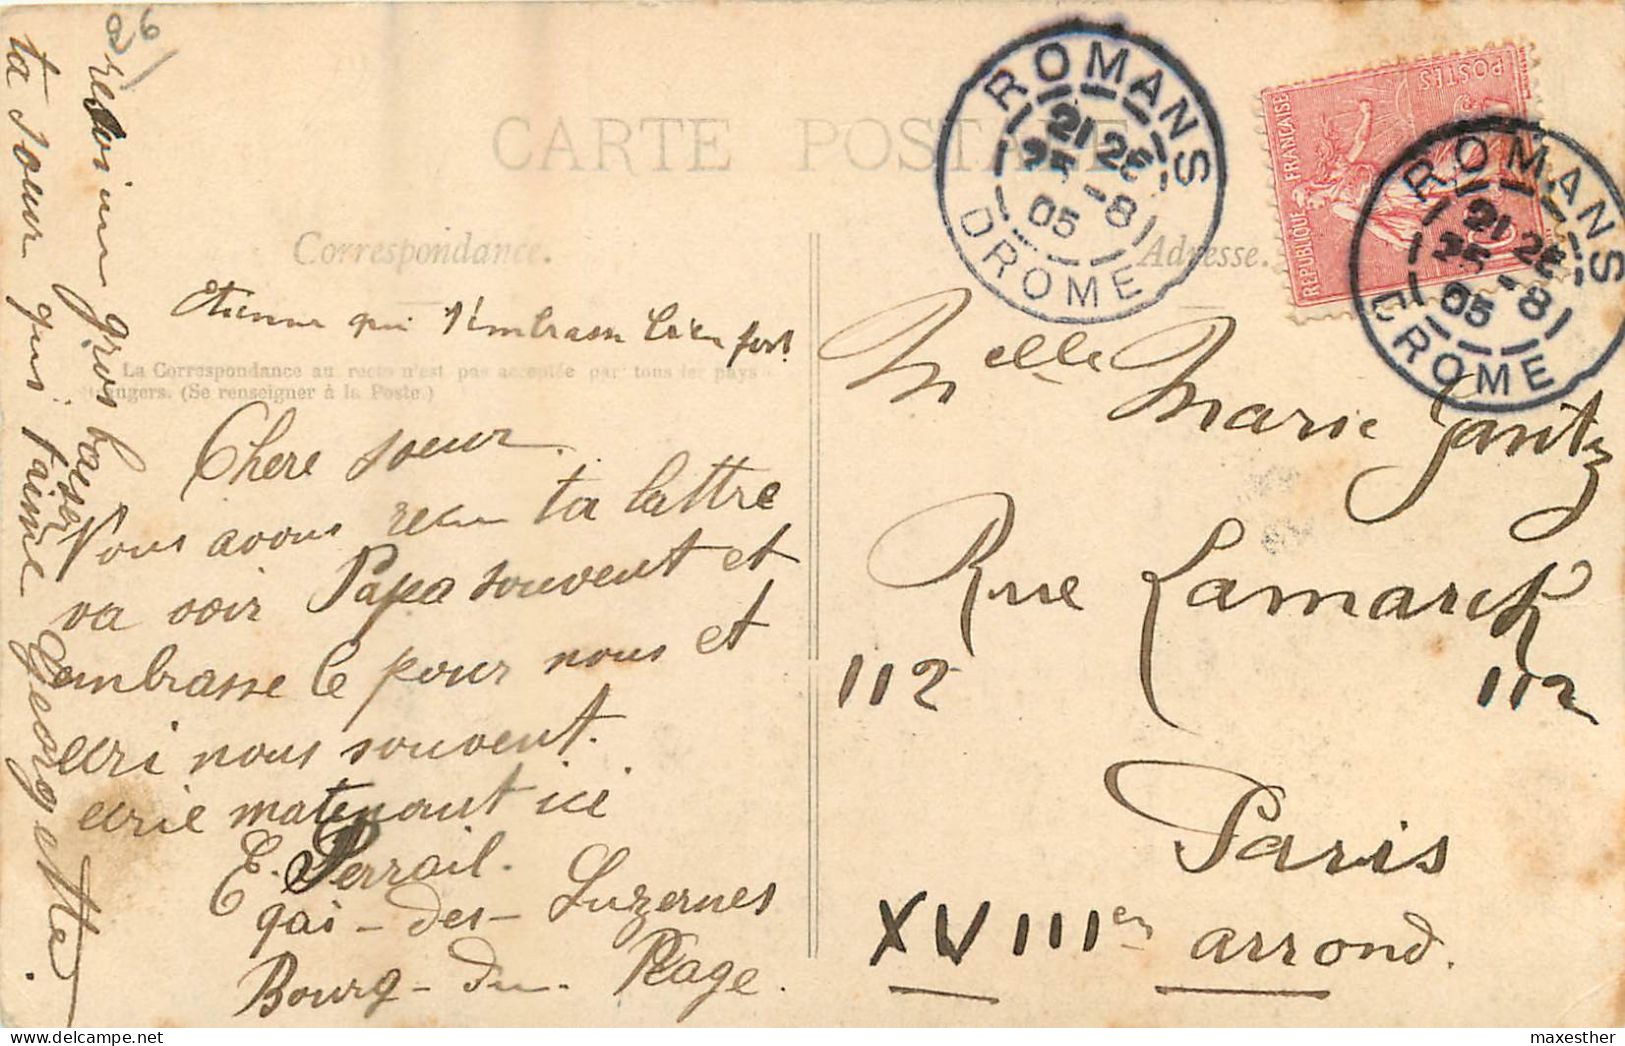 26
CARTE POSTALE
Correspondance.
Adresse.
ROMANS
21 2E
25 -8
05
DROME
POSTES
REPUBLIQUE FRANÇAISE
ROMANS
21 2E
25 -8
05
DROME
Etienne qui t'embrasse bien fort
La Correspondance au recto n'est pas acceptée par tous les pays
angers. (Se renseigner à la Poste.)
Chere soeur
Nous avons recu ta lattre
va voir Papa souvent et
embrasse le pour nous et
ecri nous souvent.
ecrie matenant ici
E. Perrail.
qai - des - Luzernes
Bourg - du - Péage.
gros baeser
ta soeur qui t'aime Georgette.
Melle Marie Jantz
Rue Lamarck
112 112
Paris
XVIIIer arrond.
maxesther